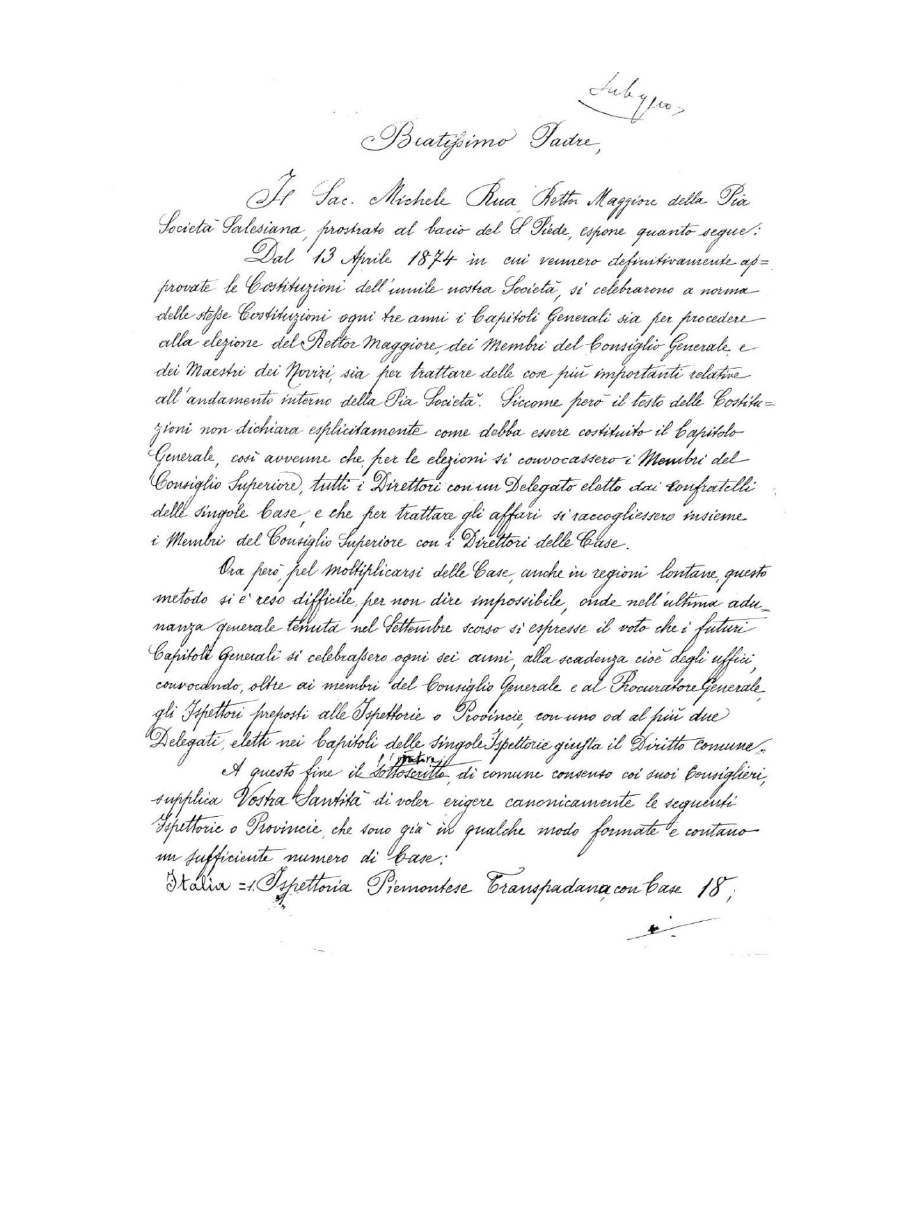 Beatissimo Padre,
Il Sac. Michele Rua, Rettor Maggiore della Pia
Società Salesiana, prostrato al bacio del S Piede, espone quanto segue:
Dal 13 Aprile 1874 in cui vennero definitivamente ap=
provate le Costituzioni dell'umile nostra Società, si celebrarono a norma
delle stesse Costituzioni ogni tre anni i Capitoli Generali sia per procedere
alla elezione del Rettor Maggiore, dei Membri del Consiglio Generale e
dei Maestri dei Novizi, sia per trattare delle cose più importanti relative
all'andamento interno della Pia Società. Siccome però il testo delle Costitu=
zioni non dichiara esplicitamente come debba essere costituito il Capitolo
Generale, così avvenne che per le elezioni si convocassero i Membri del
Consiglio Superiore, tutti i Direttori con un Delegato eletto dai Confratelli
delle singole Case, e che per trattare gli affari si raccogliessero insieme
i Membri del Consiglio Superiore con i Direttori delle Case.
Ora però, pel moltiplicarsi delle Case, anche in regioni lontane, questo
metodo si è reso difficile, per non dire impossibile, onde nell'ultima adu-
nanza generale tenuta nel Settembre scorso si espresse il voto che i futuri
Capitoli Generali si celebrassero ogni sei anni, alla scadenza cioè degli uffici,
convocando, oltre ai membri del Consiglio Generale e al Procuratore Generale,
gli Ispettori preposti alle Ispettorie o Provincie, con uno od al più due
Delegati, eletti nei Capitoli delle singole Ispettorie giusta il Diritto comune.
A questo fine il sottoscritto, di comune consenso coi suoi Consiglieri,
supplica Vostra Santità di voler erigere canonicamente le seguenti
Ispettorie o Provincie, che sono già in qualche modo formate e contano
un sufficiente numero di Case:
Italia = 1. Ispettoria Piemontese Transpadana, con Case 18;